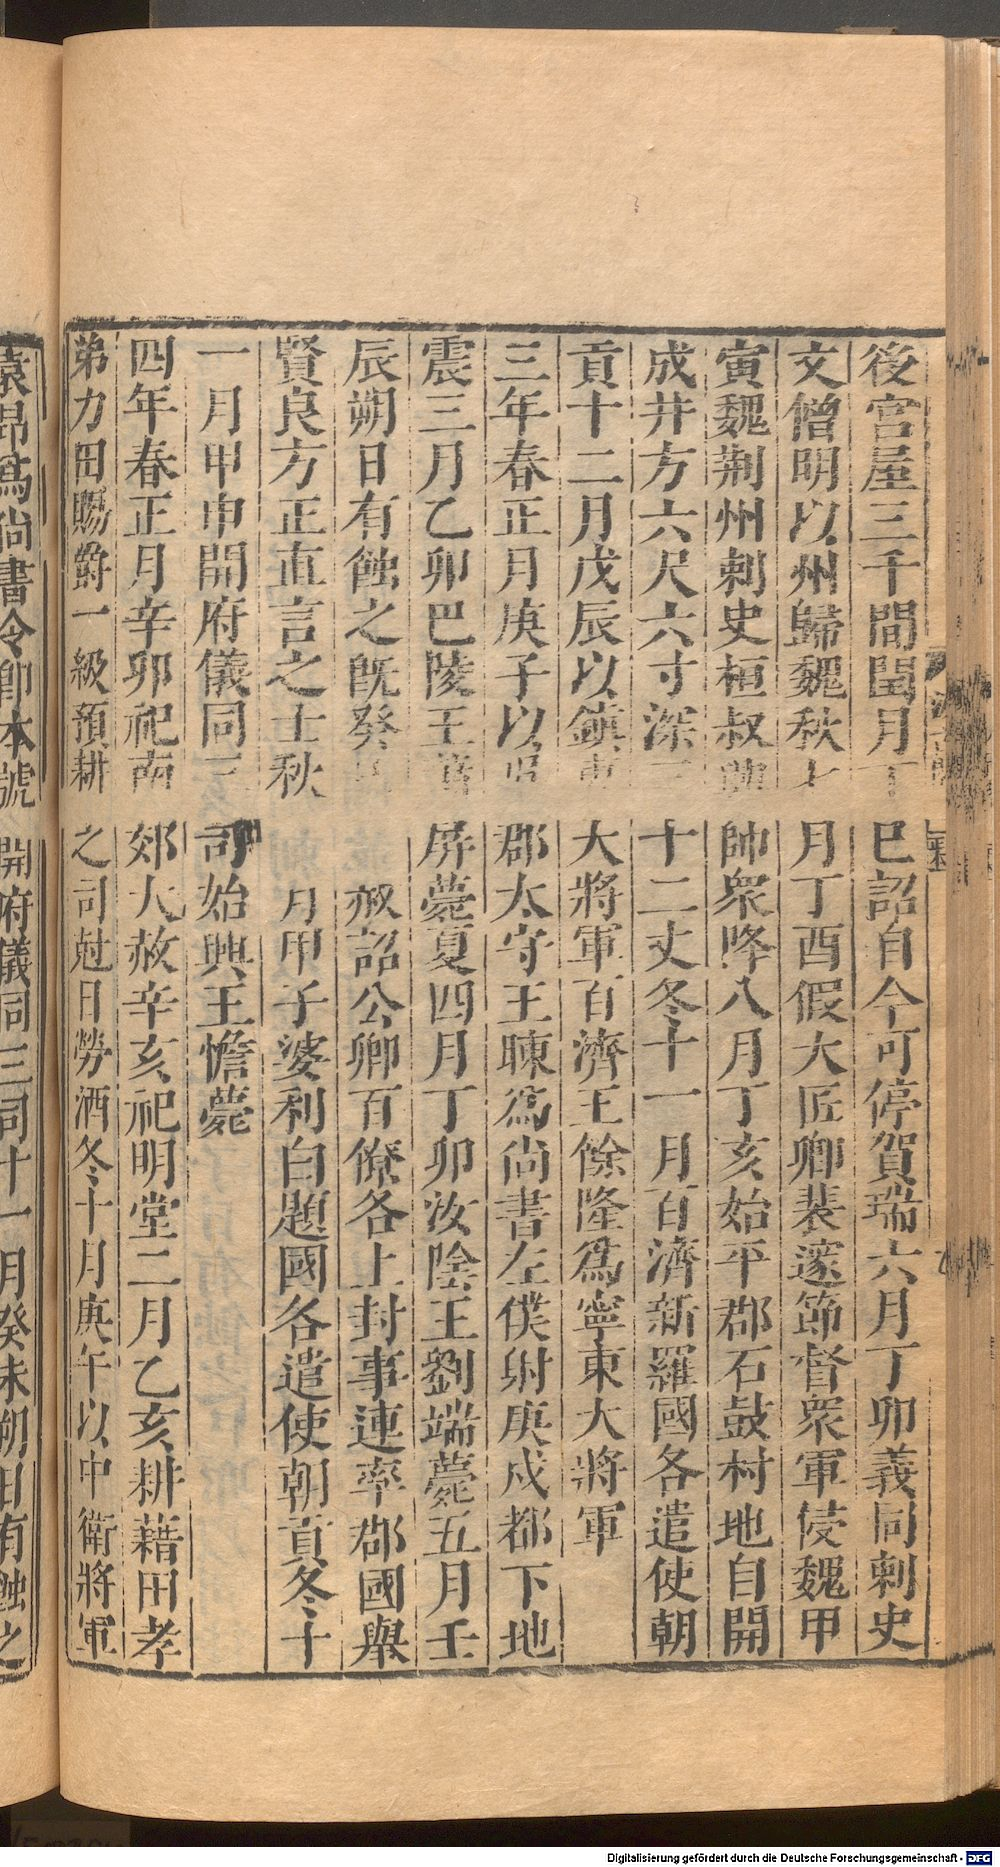 後宮屋三千間閏月丁巳詔自今可停賀瑞六月丁卯義同刺史
文僧明以州歸魏秋七月丁酉假大匠卿裴邃節督眾軍侵魏甲
寅魏荆州刺史桓叔興帥衆降八月丁亥始平郡石鼓村地自開
成井方六尺六寸深三十二丈冬十一月百濟新羅國各遣使朝
貢十二月戊辰以鎮東大將軍百濟王餘隆爲寧東大將軍
三年春正月庚子以吳郡太守王暕爲尚書左僕射庚戌都下地
震三月乙卯巴陵王屏薨夏四月丁卯汝陰王劉端薨五月壬
辰朔日有蝕之既癸赦詔公卿百僚各上封事連率郡國舉
賢良方正直言之士秋月甲子婆利白題國各遣使朝貢冬十
一月甲申開府儀同三司始興王憺薨
四年春正月辛卯祀南郊大赦辛亥祀明堂二月乙亥耕藉田孝
弟力田賜爵一級預耕之司尅日勞酒冬十月庚午以中衛將軍
袁昂爲尚書令卽本號開府儀同三司十一月癸未朔日有蝕之
Digitalisierung gefördert durch die Deutsche Forschungsgemeinschaft - DFG